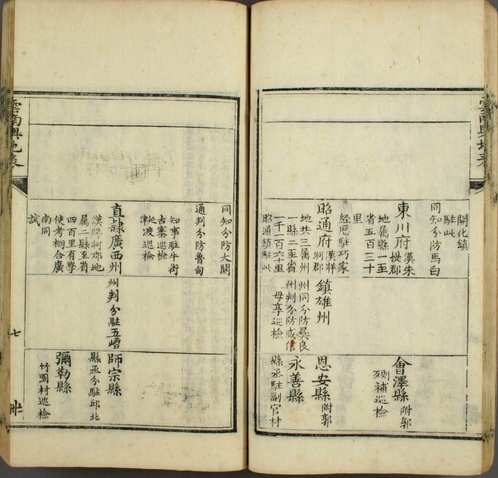 開化鎮
駐此
同知分防馬白
東川府 漢朱
提郡
地屬縣一至
省五百三十
里
經歷駐巧家
會澤縣 附郭
巡檢
昭通府 漢牂
牁郡
地共三屬州
一縣二至省
一千一百六十里
昭通鎮駐此
鎮雄州
州同分防彝良
州判分防威信
母享巡檢
恩安縣 附郭
永善縣
縣丞駐副官村
同知分防大關
通判分防魯甸
知事駐牛街
古寨巡檢
巡檢
直隸廣西州
漢牂牁郡地
屬二縣至省
四百里有學
使考棚合廣
南同
試
州判分駐五嶆
師宗縣
縣丞分駐邱北
彌勒縣
竹園村巡檢
七